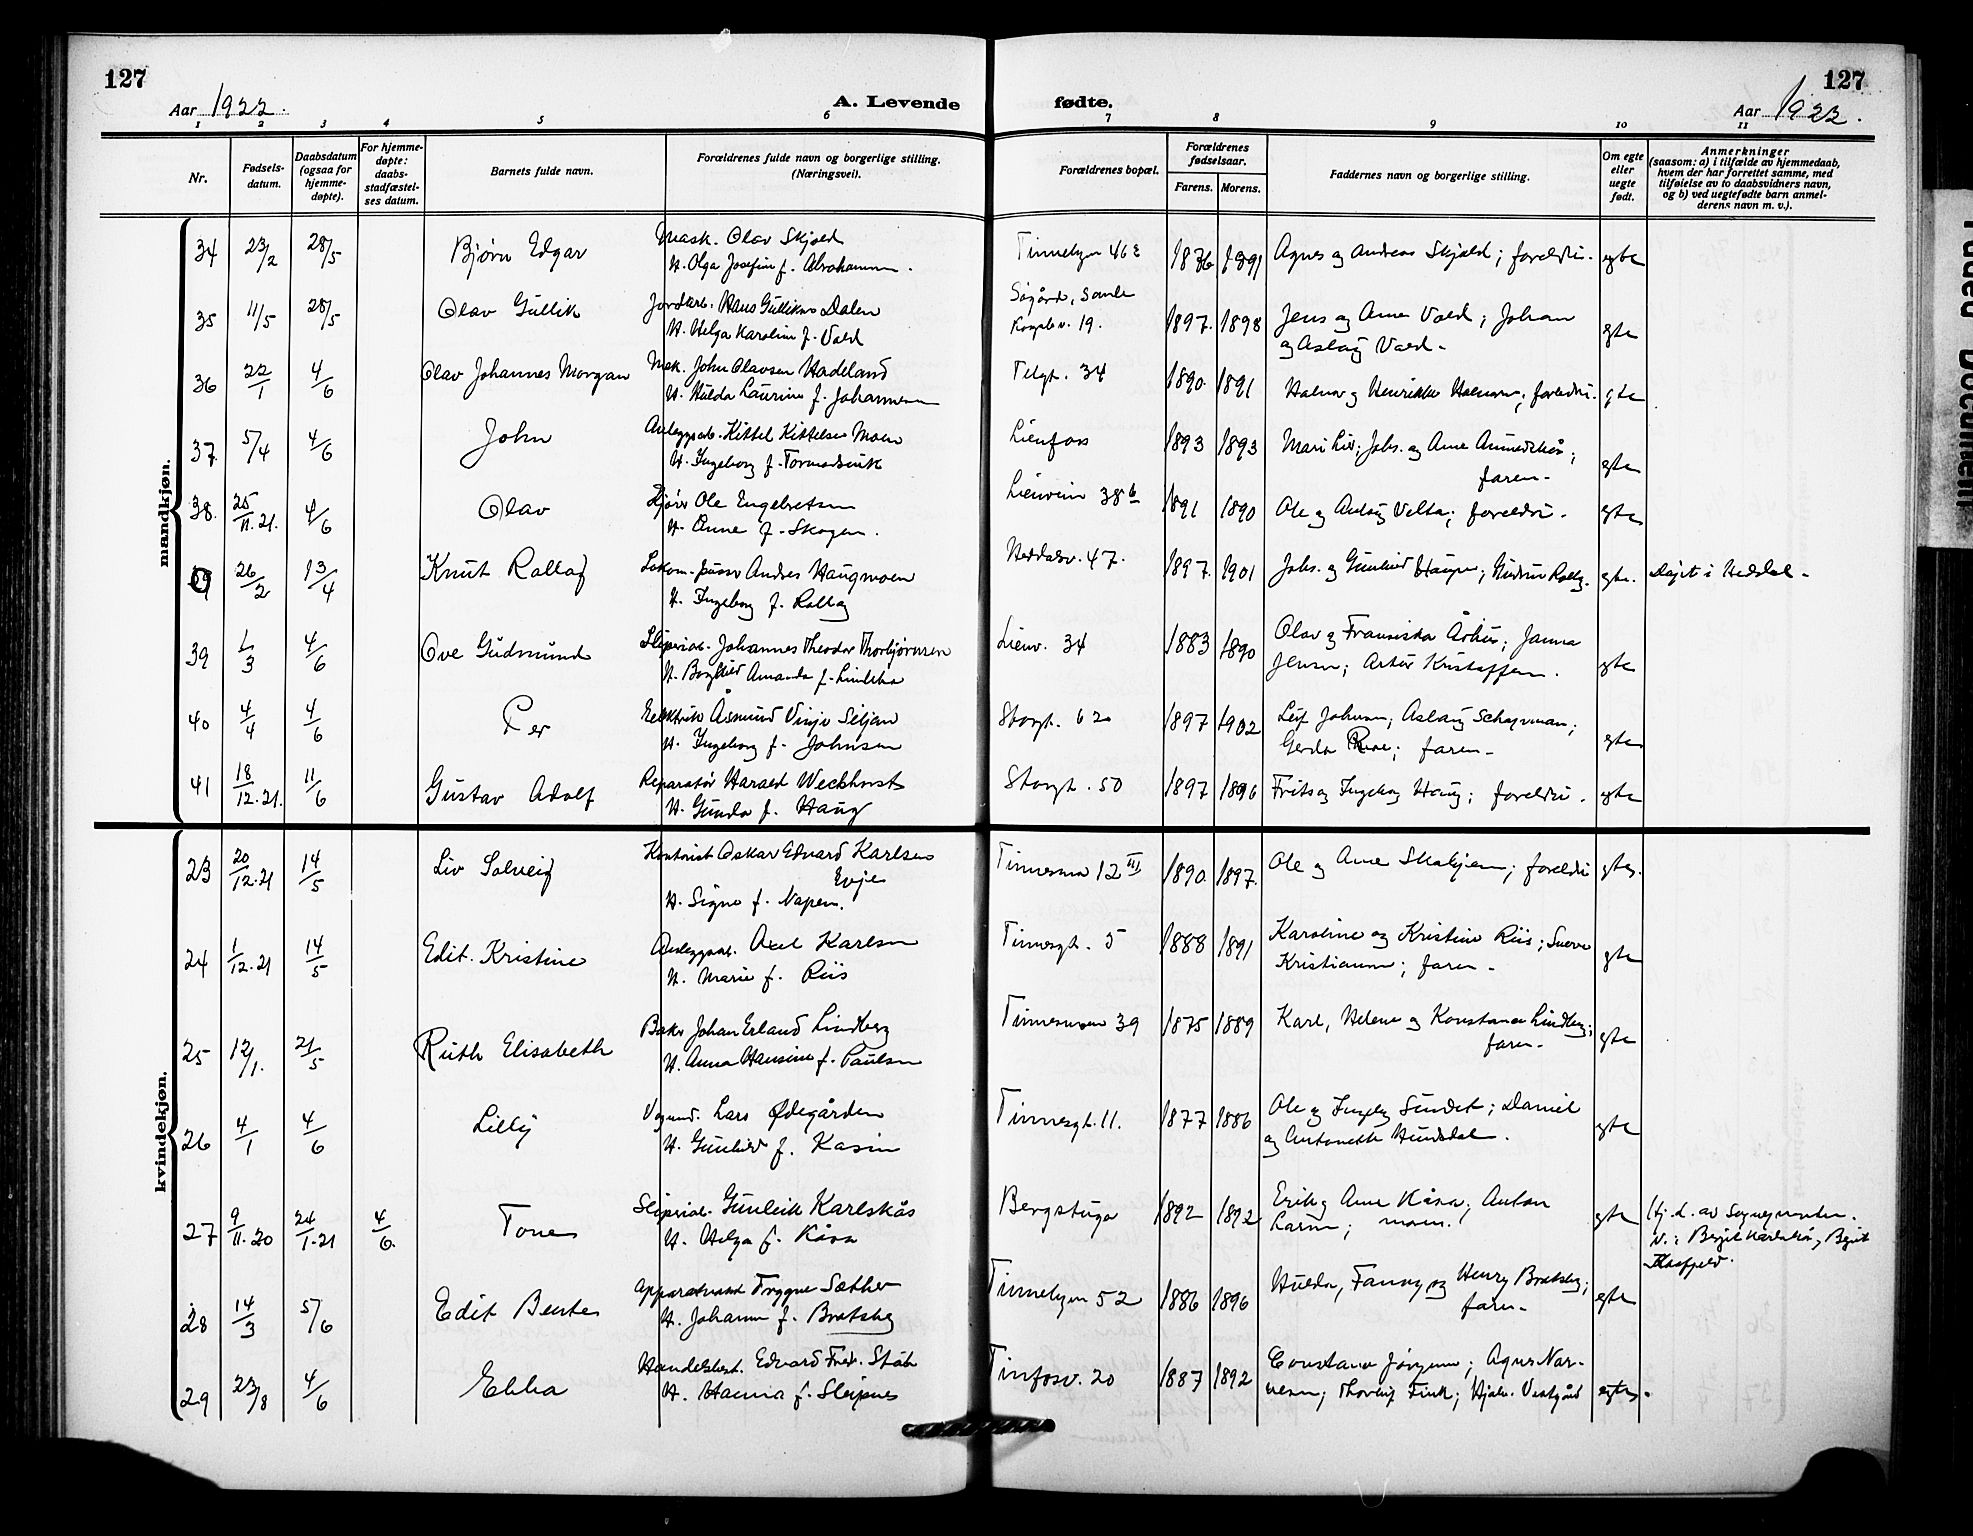 127
127
Aar 1922.
A. Levende fødte.
Aar 1922.
1 2 3 4 5 6 7 8 9 10 11
Nr.
Fødsels-
datum.
Daabsdatum
(ogsaa for
hjemme-
døpte).
For hjemme-
døpte:
daabs-
stadfæstel-
ses datum.
Barnets fulde navn.
Forældrenes fulde navn og borgerlige stilling.
(Næringsvei).
Forældrenes bopæl.
Forældrenes
fødselsaar.
Farens. Morens.
Faddernes navn og borgerlige stilling.
Om egte
eller
uegte
født.
Anmerkninger
(saasom: a) i tilfælde av hjemmedaab,
hvem der har forrettet samme, med
tilføielse av to daabsvidners navn,
og b) ved uegtefødte barn anmel-
derens navn m. v.).
mandkjøn.
34 23/2 28/5 Bjørn Edgar Mask. Olav Skjold Tinnebyen 46 1876 1891 Agnes og Andreas Skjold; foreldri. egte
H. Olga Josefin f. Abrahamsen.
35 11/5 28/5 Olav Gullik Jordarb. Hans Gulliksen Dalen Søgård, Sauh. 1897. 1898 Jens og Anne Vald; Johan
H. Helga Karolin f. Vald 19. og Aslaug Vald. egte
36 22/1 4/6 Olav Johannes Morgan Mek. John Olavsen Hadeland Telgt. 34 1890. 1891 Halvor og Henrikke; foreldri. egte
H. Hulda Laurine f. Johannesen
37. 5/4 4/6 John Anleggsarb. Kittel Kittelsen Moen Lienfoss 1893 1893 Mari Lie; Johs. og Anne;
H. Ingeborg f. Tormodsrud faren. egte
38. 25/11.21. 4/6 Olav Kjører Ole Engebretsen Lienvein 38 b 1891 1890 Ole og Aslaug Velta; foreldri. egte
H. Anne f. Skogen.
26/2 13/4 Knut Rollag Lokom. pusser Andres Haugmoen Heddalsv. 47. 1897. 1901 Johs. og Gunhild Haugen; Gudrun Rollag. egte. Døpt i Heddal.
H. Ingeborg f. Rollag
39 1/3 4/6 Ove Gudmund Sliperiarb. Johannes Theodor Thorbjørnsen Lienv. 34 1883 1890 Olav og Fransiska Århus; Janna
H. Borghild Amanda f. Lindska Jensen; Artur Kristoffersen. egte
40 4/4 4/6 Per Elektrik Åsmund Vinje Siljan Storgt. 62 1897 1902 Leif Johnsen; Aslaug;
H. Ingeborg f. Johnsen Gerda; faren. egte
41 18/12.21. 11/6 Gustav Adolf Reparatør Harald Weckhorst Storgt. 50 1897 1896 Frits og Ingeborg Haug; foreldri. egte
H. Gunda f. Haug
kvindekjøn.
23 20/12.21 14/5 Liv Solveig Kontorist Oskar Edvard Karlsen Tinnesmoen 12 III 1890. 1897. Ole og Anne; foreldri egte.
Evje
H. Signe f. Napen.
24 1/12.21 14/5 Edit. Kristine Anleggsarb. Axel Karlsen Tinnesgt. 5 1888 1891 Karoline og Kristine Riis; Sverre
H. Marie f. Riis Kristiansen; faren. egte
25 12/1. 21/5 Ruth Elisabeth Baker Johan Erland Lindberg Tinnesmoen 39 1875 1889 Karl, Helene og Konstanse Lindberg;
H. Anna Hansine f. Paulsen faren. egte
26 4/1 4/6 Lilly Vognmd. Lars Ødegården Tinnesgt. 11. 1877 1886 Ole og Ingeborg Sundet; Daniel
H. Gunhild f. Kasin og Antonette Hundsdal. egte
27 9/11.20 24/1.21 4/6. Tone Sliperiarb. Gunleik Karlskås Bergstuga 1892 1892 Erik og Anne Kåsa; Anton
H. Helga f. Kåsa Larsen; moren. egte Hj. d. av Sognepresten.
V.: Bergit Karlskås, Bergit
28 14/3 5/6 Edit Bente Trygve Sæther Tinnebyen 52 1886 1896 Hulda, Fanny og Henry Bratsberg;
H. Johanne f. Bratsberg faren. egte
29 23/8 4/6 Ebba Handelsbest. Edvard Fred. Ståh Tinfosv. 20 1887 1892 Constance Jørgensen; Agnes Nar-
H. Hanna f. Sleipnes vesen; Thorleif Fink; Hjalm. Vestgård egte.